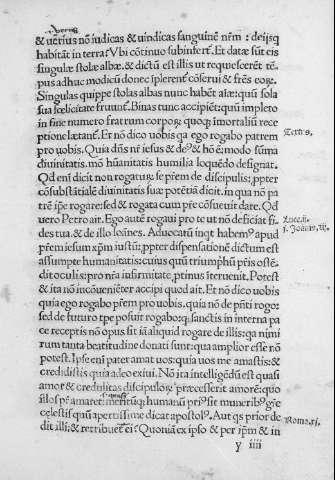 & uerius nõ iudicas & uindicas sanguinẽ nr̃m : de iis qͥ
habitãt in terraꝰ Vbi cõtinuo subinfert. Et datæ sũt eis
singulæ stolæ albæ. & dictũ est illis ut requiescerẽt tẽ-
pus adhuc modicũ donec ĩplerent̃ cõserui & frẽs eoꝝ.
Singulas quippe stolas albas nunc habẽt aĩæ: quĩ sola
sua fœlicitate fruunt̃. Binas tunc accipiẽt: quũ impleto
in fine numero fratrum corpoꝝ quoqꝫ ĩmortaliũ rece
ptione lætant̃. Et nõ dico uobis qa ego rogabo patrem
pro uobis. Quia dñs nr̃ iesus & deꝰ & hõ ẽ: modo sũma
diuinitatis. mõ hũanitatis humilia loquẽdo designat.
Qd eñĩ dicit non rogaturꝝ se pr̃em de discipulis: ꝓpter
cõsubstãtialẽ diuinitatis suæ potẽtiã dicit. in qua nõ pa
trẽ ip̃e rogare: sed & rogata cum pr̃e cõsueuit dare. Qd
uero Petro ait. Ego autẽ rogaui pro te ut nõ deficiat fi-
des tua. & de illo Ioãnes. Aduocatũ inqͭ habemꝰ apud
pr̃em iesum xp̃m iustũ: ꝓpter dispensationẽ dictum est
assumptæ humanitatis: cuius quũ triumphũ pr̃is ostẽ-
dit oculi: pro nr̃a infirmitate ꝓtinus iteruenit. Potest
& ita nõ incõueniẽter accipi quod ait. Et nõ dico uobis
quia ego rogabo pr̃em pro uobis. quia nõ de pñti rogo:
sed de futuro tp̃e posuit rogabo: qꝫ sanctis in interna pa
ce receptis nõ opus sit iã aliquid rogare de illis: qa nimi
rum tanta beatitudine donati sunt: qua ampliꝰ esse nõ
potest. Ipse eñĩ pater amat uos: quia uos me amastis: &
credidistis quia a deo exiui. Nõ ita intelligẽdũ est quasi
amor & credulitas discipuloꝝ præcesserit amorẽ: quo
illos pr̃ amaret: meritũqꝫ humanũ priꝰ sit muneribꝰ grẽ
celestis quũ apertissime dicat apostolꝰ. Aut qs prior de
dit illi: & retribuet̃ eiꝰ Quoniã ex ipso & per ip̃m & in
y iiii
Text'9.
Luce.ii.
Romã.xi.